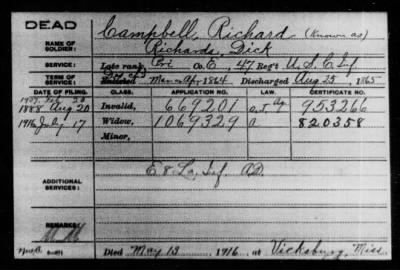 DEAD
NAME OF SOLDIER: Campbell, Richard (Known as)
Richards, Dick
SERVICE: Late rank, Pri Co. E. 47 Reg't U.S.C. Inf
TERM OF SERVICE: Enlisted Mar Apr, 1864 Discharged Aug 25 1865
DATE OF FILING. CLASS. APPLICATION NO. LAW. CERTIFICATE NO.
1888 Aug 20 Invalid, 669201 953266
1916 July 17 Widow, 1069329 a 820358
Minor,
ADDITIONAL SERVICES: E 8 La. Inf. A.D.
REMARKS:
Died May 13 1916, at Vicksburg, Miss.